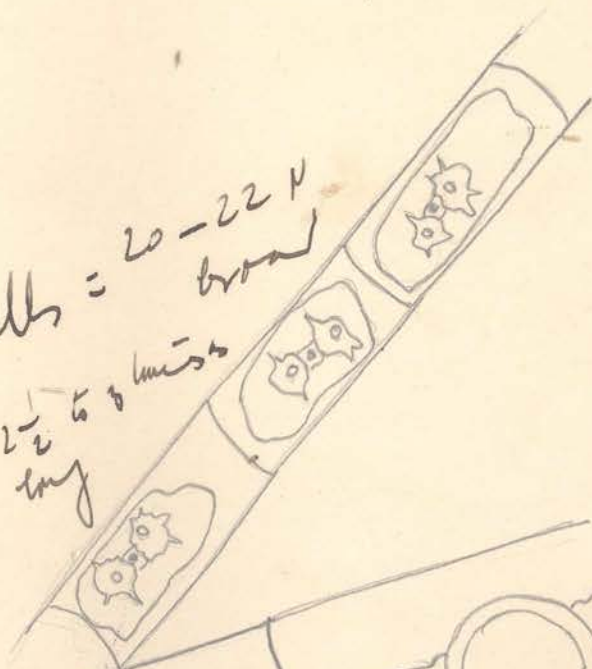 lls = 20-22 µ
broad
2½ to 3 times
long